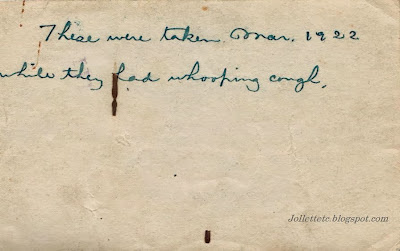 These were taken Mar. 1922
while they had whooping cough.
Jollettetc.blogspot.com